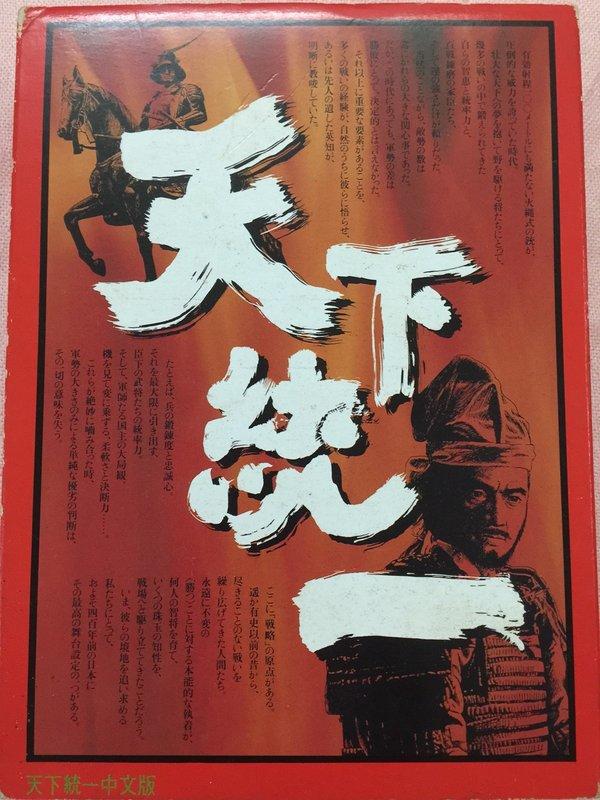 天下統一
有効射程一〇〇メートルにも満たない火縄式の銃が、
圧倒的な威力を誇っていた時代
壮大な天下への夢を抱いて野を駆ける将たちにとって、
幾多の戦いの中で鍛えられてきた
自らの智恵と統率力と、
百戦錬磨の家臣たち、
そして運の強さだけが頼りだった。
当然のことながら、敵勢の数は
大きな関心事であった。
この時代にあっても、軍勢の差は
勝敗にとって決定的とは言えなかった。
それ以上に重要な要素があることを、
多くの戦いの経験が、自然のうちに彼らに悟らせ、
あるいは先人の遺した英知が、
明晰に教唆していた。
たとえば、兵の鍛錬度と忠誠心、
それを最大限に引き出す、
臣下の武将たちの統率力。
そして、軍師たる国主の大局観、
機を見て変に乗ずる、柔軟さと決断力……。
これらが絶妙に噛み合った時、
軍勢の大きさのみによる単純な優劣の判断は、
その一切の意味を失う。
ここに「戦略」の原点がある。
遥か有史以前の昔から、
尽きることのない戦いを
繰り広げてきた人間たち。
永遠に不変の
〈勝つ〉ことに対する本能的な執着が、
何人の智将を育て、
いくつの珠玉の知性を、
戦場へと駆り立ててきたことだろう。
いま、彼らの境地を追い求める
私たちにとって、
およそ四百年前の日本に
その最高の舞台設定の一つがある。
天下統一中文版